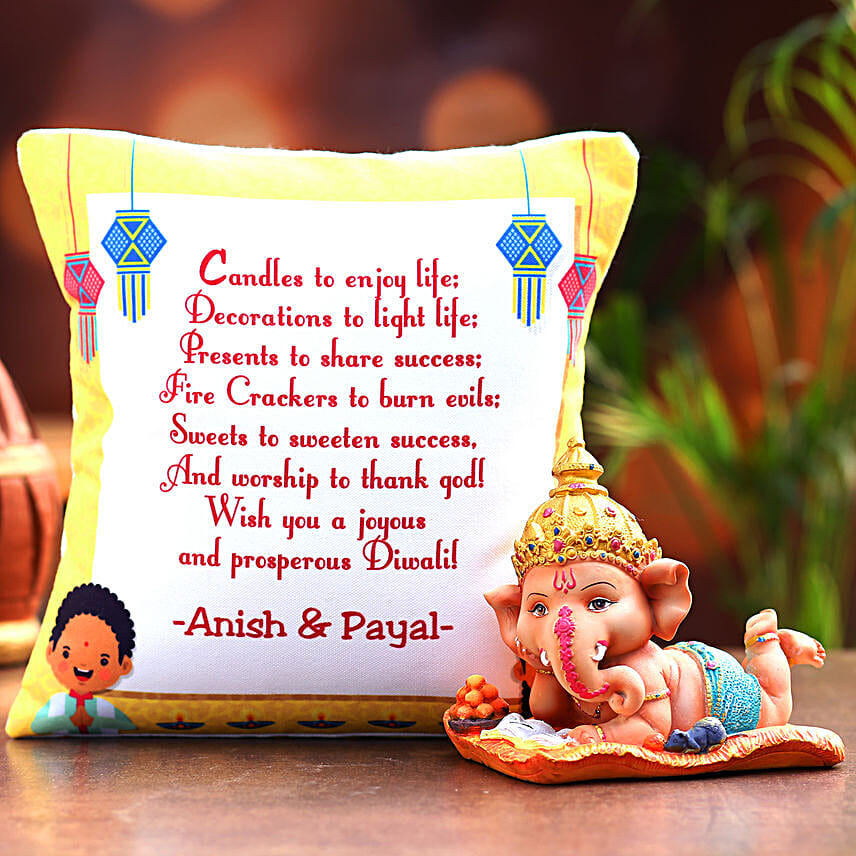 Candles to enjoy life;
Decorations to light life;
Presents to share success;
Fire Crackers to burn evils;
Sweets to sweeten success,
And worship to thank god!
Wish you a joyous
and prosperous Diwali!
-Anish & Payal-